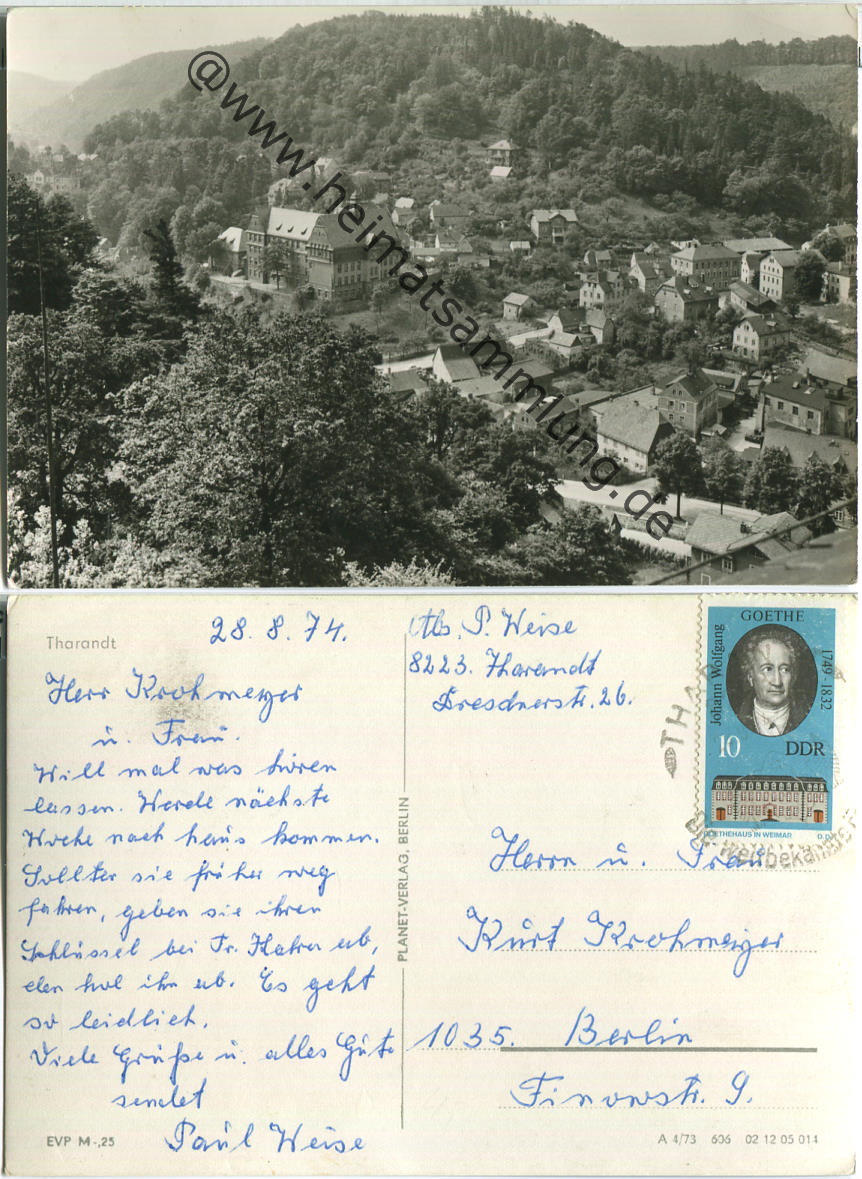 @www.heimatsammlung.de
Tharandt
28. 8. 74.
Herr Krohmeyer
u. Frau.
Will mal was hören
lassen. Werde nächste
Woche nach haus kommen.
Sollten sie früher weg
fahren, geben sie ihren
Schlüssel bei Fr. Hahn ab,
den hol ihn ab. Es geht
so leidlich.
Viele Grüße u. alles Gute
sendet
Paul Weise
EVP M -,25
PLANET-VERLAG, BERLIN
Abs. P. Weise
8223. Tharandt
Dresdnerstr. 26.
Johann Wolfgang
GOETHE
1749-1832
10 DDR
GOETHEHAUS IN WEIMAR
THA
weltbekannte
Herrn u. Frau
Kurt Krohmeyer
1035. Berlin
Finowstr. 9.
A 4/73 606 02 12 05 014